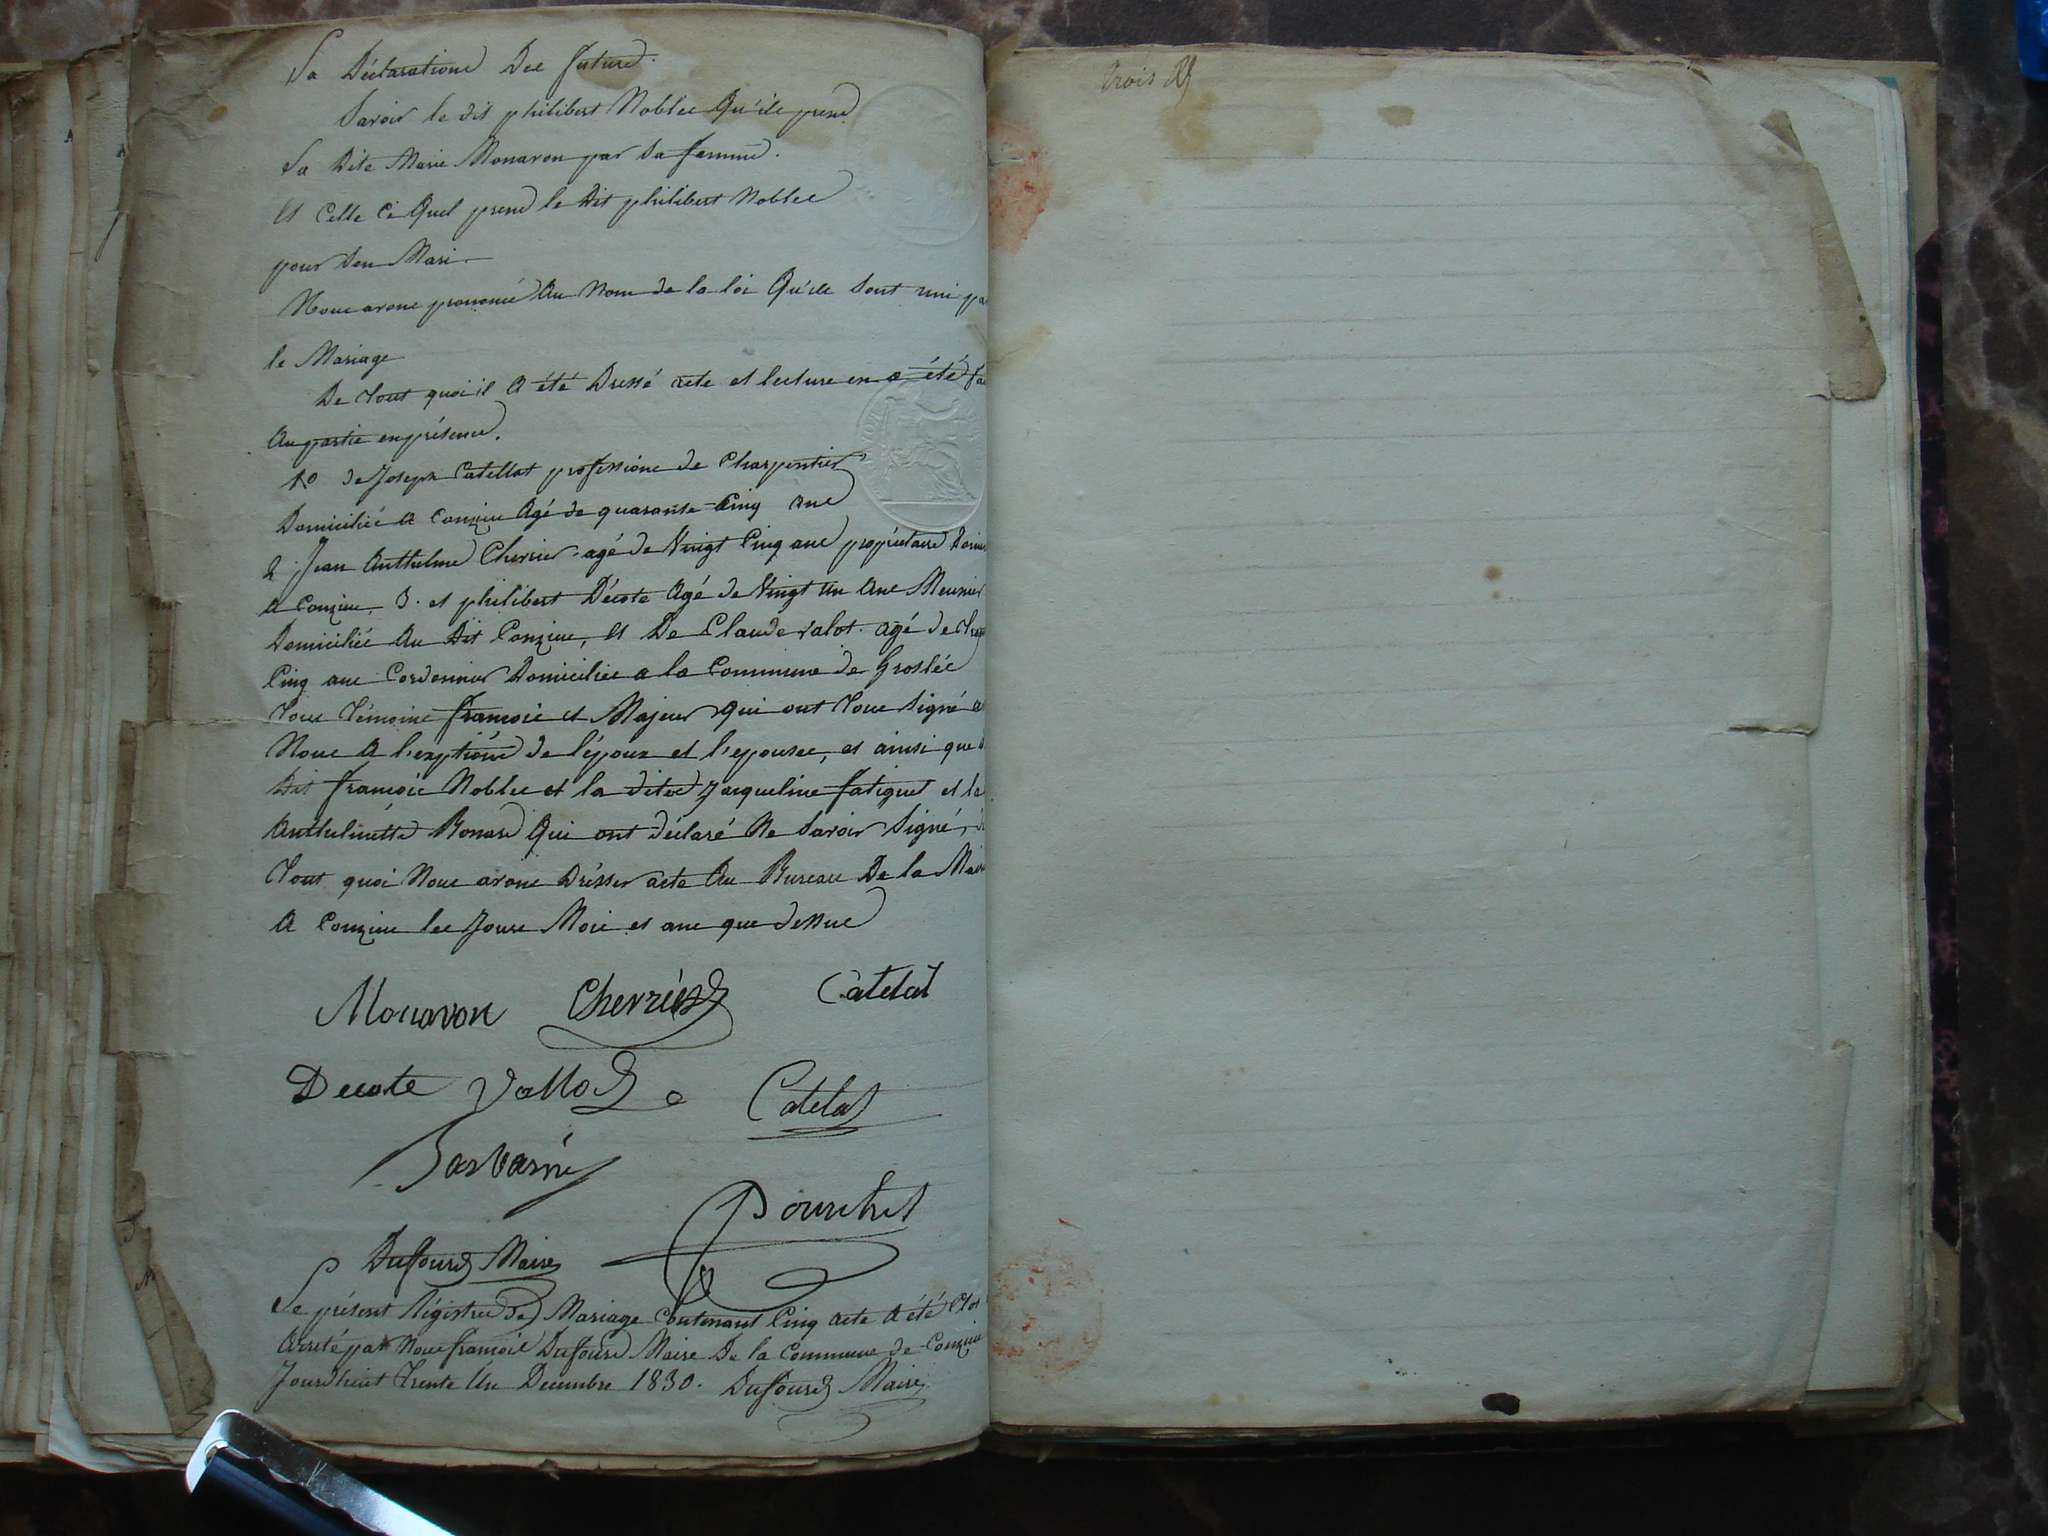 La Déclaratione Dee future.
Savoir le dit philibert Noblee Qu'ile prend
La Dite Marie Monavon par Sa femme.
Et Celle Ci Quel prend le Dit philibert Noblee
pour Son Mari
Noue avone prononcé Au Nom de la loi Qu'ile Sont uni pa
le Mariage
De tout quoi il A été Dressé acte et lecture en a été fa
Au partie en présence.
1o de Joseph Catellat professione de Charpentier
Domicilié a Conzieu Agé de quarante Cinq ane
2 Jean Anthelme Cherrier agé de Vingt Cinq ane propriétaire Domi
A Conzieu, 3. et philibert Décote Agé de Vingt un Ane Meunier
Domicilié Au Dit Conzieu, Et De Claude valot. agé de
Cinq ane Cordonnier Domiciliée a la Commune de Groslée
Toue Témoine francoie et Majeur qui ont Toue Signé a
Noue A l'exptione de l'époux et l'epousee, et ainsi que
Dit francoie Noblee et la dite Jacqueline fatigue et la
Anthelmette Bonard Qui ont déclaré Ne Savoir Signé, d
Tout quoi Noue avone Drésser acte Au Bureau De la Mai
A Conzieu lee Joure Moie et ane que dessue
Monavon Cherrier Catelat
Decote Vallod Catelat
Barbarin
Pourchet
Duffourd Maire
Le présent Régistre de Mariage Contenant Cinq acte A été Clos
Arrêté par Noue francoie Duffourd Maire De la Commune de Conzieu
Jourdhieut Trente Un Decembre 1830. Duffourd Maire
trois